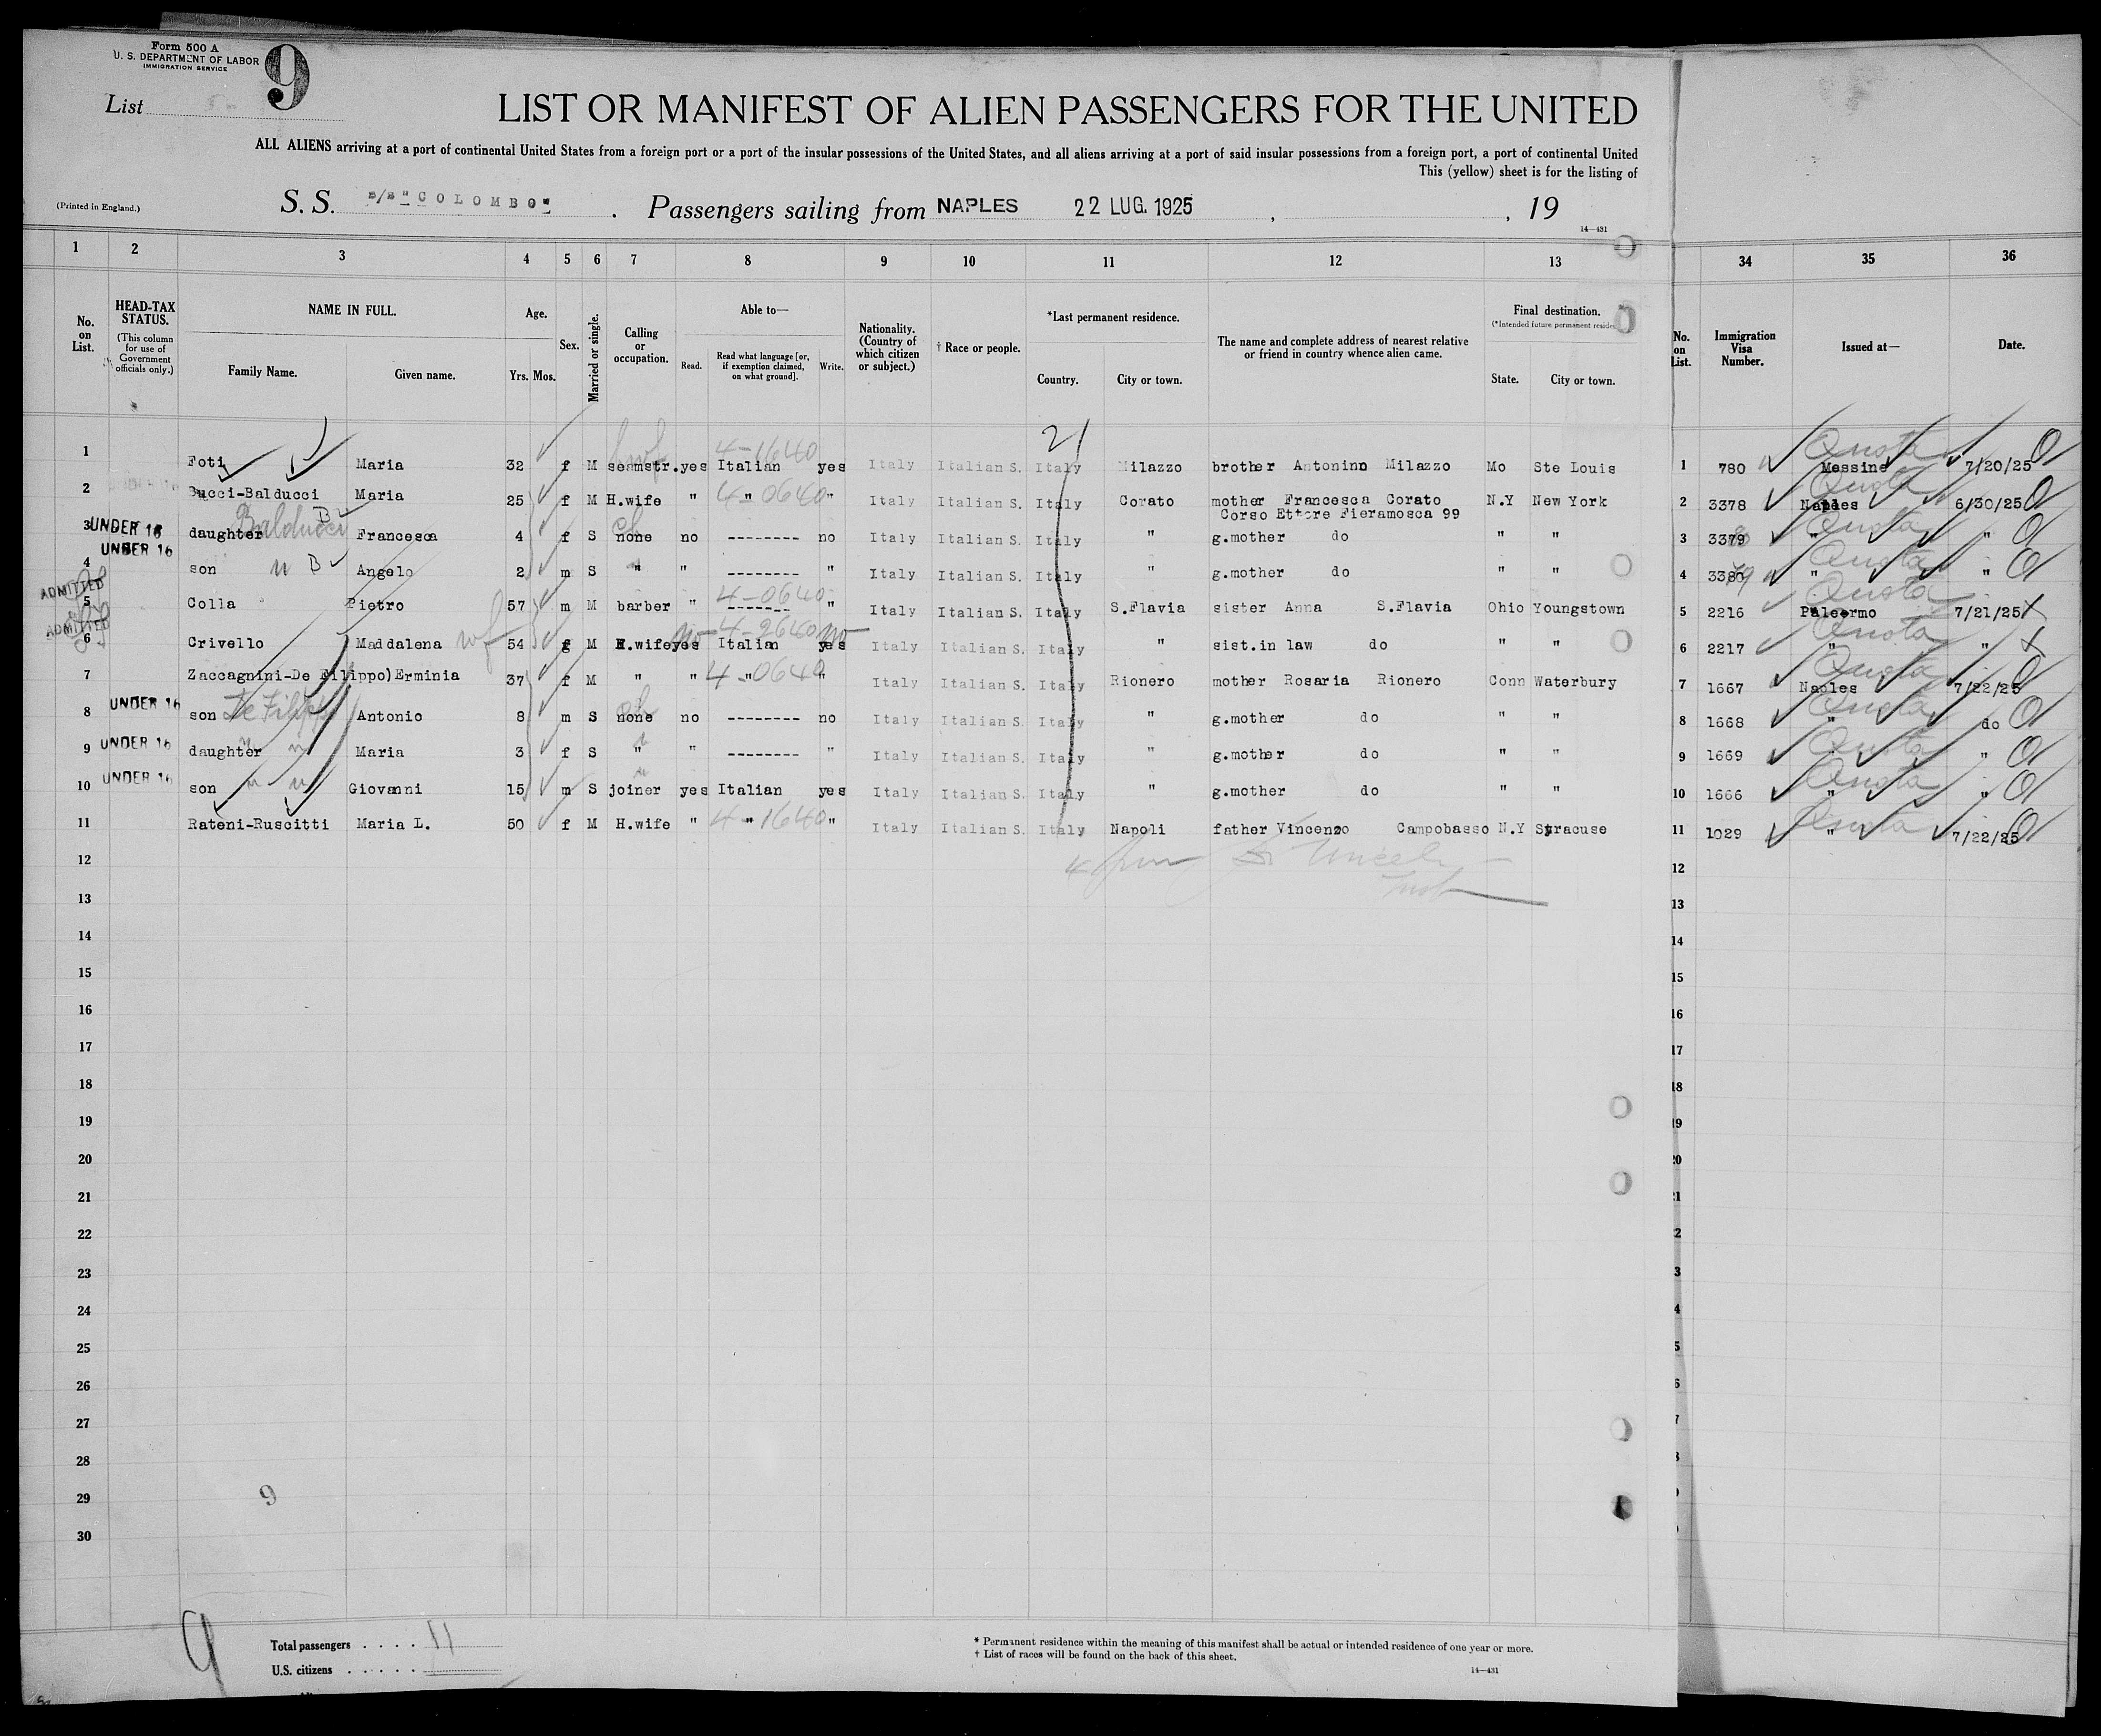 Form 500 A
U. S. DEPARTMENT OF LABOR
IMMIGRATION SERVICE
9
List
LIST OR MANIFEST OF ALIEN PASSENGERS FOR THE UNITED
ALL ALIENS arriving at a port of continental United States from a foreign port or a port of the insular possessions of the United States, and all aliens arriving at a port of said insular possessions from a foreign port, a port of continental United
This (yellow) sheet is for the listing of
(Printed in England.)
S. S. s/s "COLOMBO" . Passengers sailing from NAPLES 22 LUG. 1925 , , 19
14—431
1 2 3 4 5 6 7 8 9 10 11 12 13 34 35 36
No. on List.
HEAD-TAX STATUS.
(This column for use of Government officials only.)
NAME IN FULL.
Family Name. Given name.
Age.
Yrs. Mos.
Sex.
Married or single.
Calling or occupation.
Able to—
Read. Read what language [or, if exemption claimed, on what ground]. Write.
Nationality. (Country of which citizen or subject.)
† Race or people.
*Last permanent residence.
Country. City or town.
The name and complete address of nearest relative or friend in country whence alien came.
Final destination.
(*Intended future permanent
State. City or town.
No. on List.
Immigration Visa Number.
Issued at—
Date.
21
1 Foti Maria 32 f M seamstr. yes Italian 4-1640 yes Italy Italian S. Italy Milazzo brother Antonino Milazzo Mo Ste Louis 1 780 Quota Messine 7/20/25
2 Bucci-Balducci Maria 25 f M H.wife " " 4-0640 " Italy Italian S. Italy Corato mother Francesca Corato N.Y New York 2 3378 Quota Naples 6/30/25
Corso Ettore Fieramosca 99
3 UNDER 16 daughter Balducci Francesca 4 f S none no -------- no Italy Italian S. Italy " g.mother do " " 3 3379 Quota " "
4 UNDER 16 son " B Angelo 2 m S " " -------- " Italy Italian S. Italy " g.mother do " " 4 3380 Quota " "
5 ADMITTED Colla Pietro 57 m M barber " ------- 4-0640 " Italy Italian S. Italy S.Flavia sister Anna S.Flavia Ohio Youngstown 5 2216 Quota Paleermo 7/21/25
6 ADMITTED Crivello Maddalena wf 54 f M H.wife yes no Italian 4-2640 yes no Italy Italian S. Italy " sist.in law do " " 6 2217 Quota " "
7 Zaccagnini-De Filippo) Erminia 37 f M " " " 4-0640 " Italy Italian S. Italy Rionero mother Rosaria Rionero Conn Waterbury 7 1667 Quota Naples 7/22/25
8 UNDER 16 son De Filippo Antonio 8 m S none no -------- no Italy Italian S. Italy " g.mother do " " 8 1668 Quota " do
9 UNDER 16 daughter " " Maria 3 f S " " -------- " Italy Italian S. Italy " g.mother do " " 9 1669 Quota " "
10 UNDER 16 son " " Giovanni 15 m S joiner yes Italian yes Italy Italian S. Italy " g.mother do " " 10 1666 Quota " "
11 Rateni-Ruscitti Maria L. 50 f M H.wife " " 4-1640 " Italy Italian S. Italy Napoli father Vincenzo Campobasso N.Y Syracuse 11 1029 Quota " 7/22/25
12 12
13 13
14 14
15 15
16 16
17 17
18 18
19 19
20 20
21
22
23
24
25
26
27
28
29
30
9
9
Total passengers . . . . 11
U.S. citizens . . . . .
* Permanent residence within the meaning of this manifest shall be actual or intended residence of one year or more.
† List of races will be found on the back of this sheet.
14—431